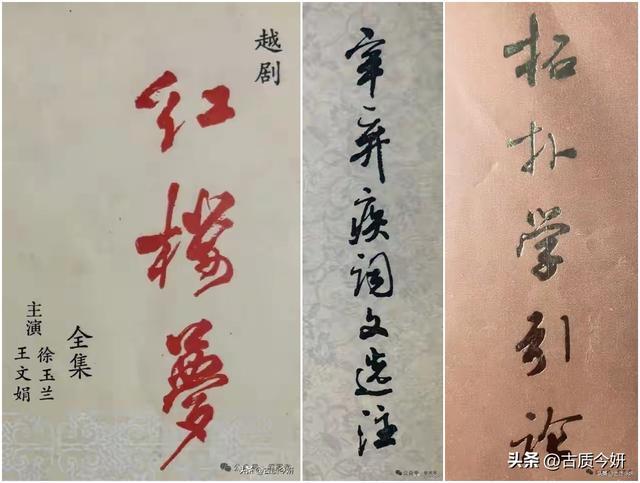 越剧
红楼夢
全集
主演
徐玉兰
王文娟
辛弃疾词文选注
公众号
拓扑学引论
头条@古质今妍